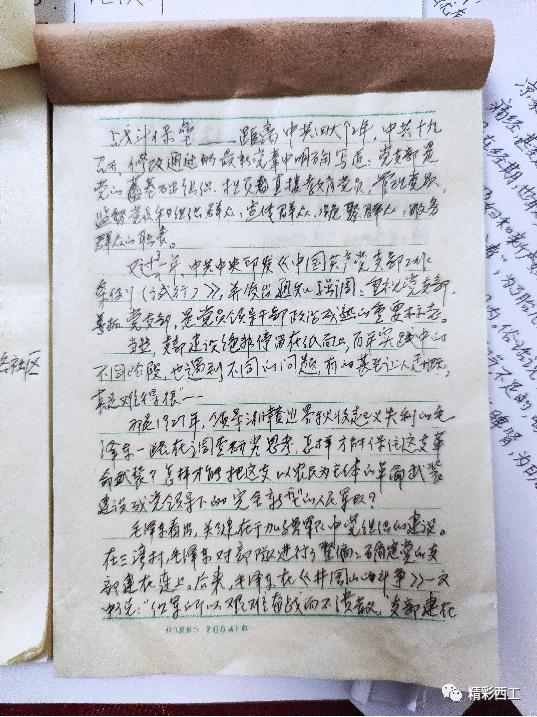 战斗保垒——距离中共四大92年，中共十九
大，修改通过的最新党章中明确写道：党支部是
党的基础组织，担负着直接教育党员、管理党员、
监督党员和组织群众、宣传群众、凝聚群众、服务
群众的职责。
年，中共中央印发《中国共产党支部工作
条例（试行）》，并发出通知强调：重视党支部、
善抓党支部，是党员领导干部政治成熟的重要标志。
当然，支部建设绝非停留在纸面上，百年实践中的
不同阶段，也遇到不同的问题，有的甚至让人
真是难得很——
1927年，领导湘赣边界秋收起义失利的毛
泽东一路在调查研究思考，怎样才能保住这支革
命武装？怎样才能把这支以农民为主体的革命武装
建设成党领导下的完全新型的人民军队？
毛泽东看出，关键在于加强军队中党组织的建设。
在三湾村，毛泽东对部队进行了整编：确定党的支
部建在连上。后来，毛泽东在《井冈山的斗争》一文
写道：“红军所以艰难奋战而不溃散，支部建在
社区
精彩西工